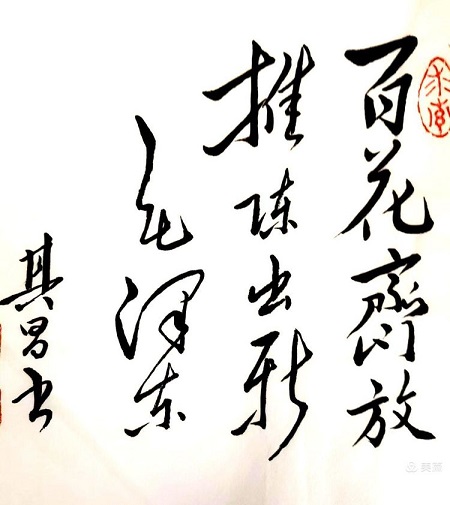 百花齊放
推陈出新
毛泽东
其昌书
美篇